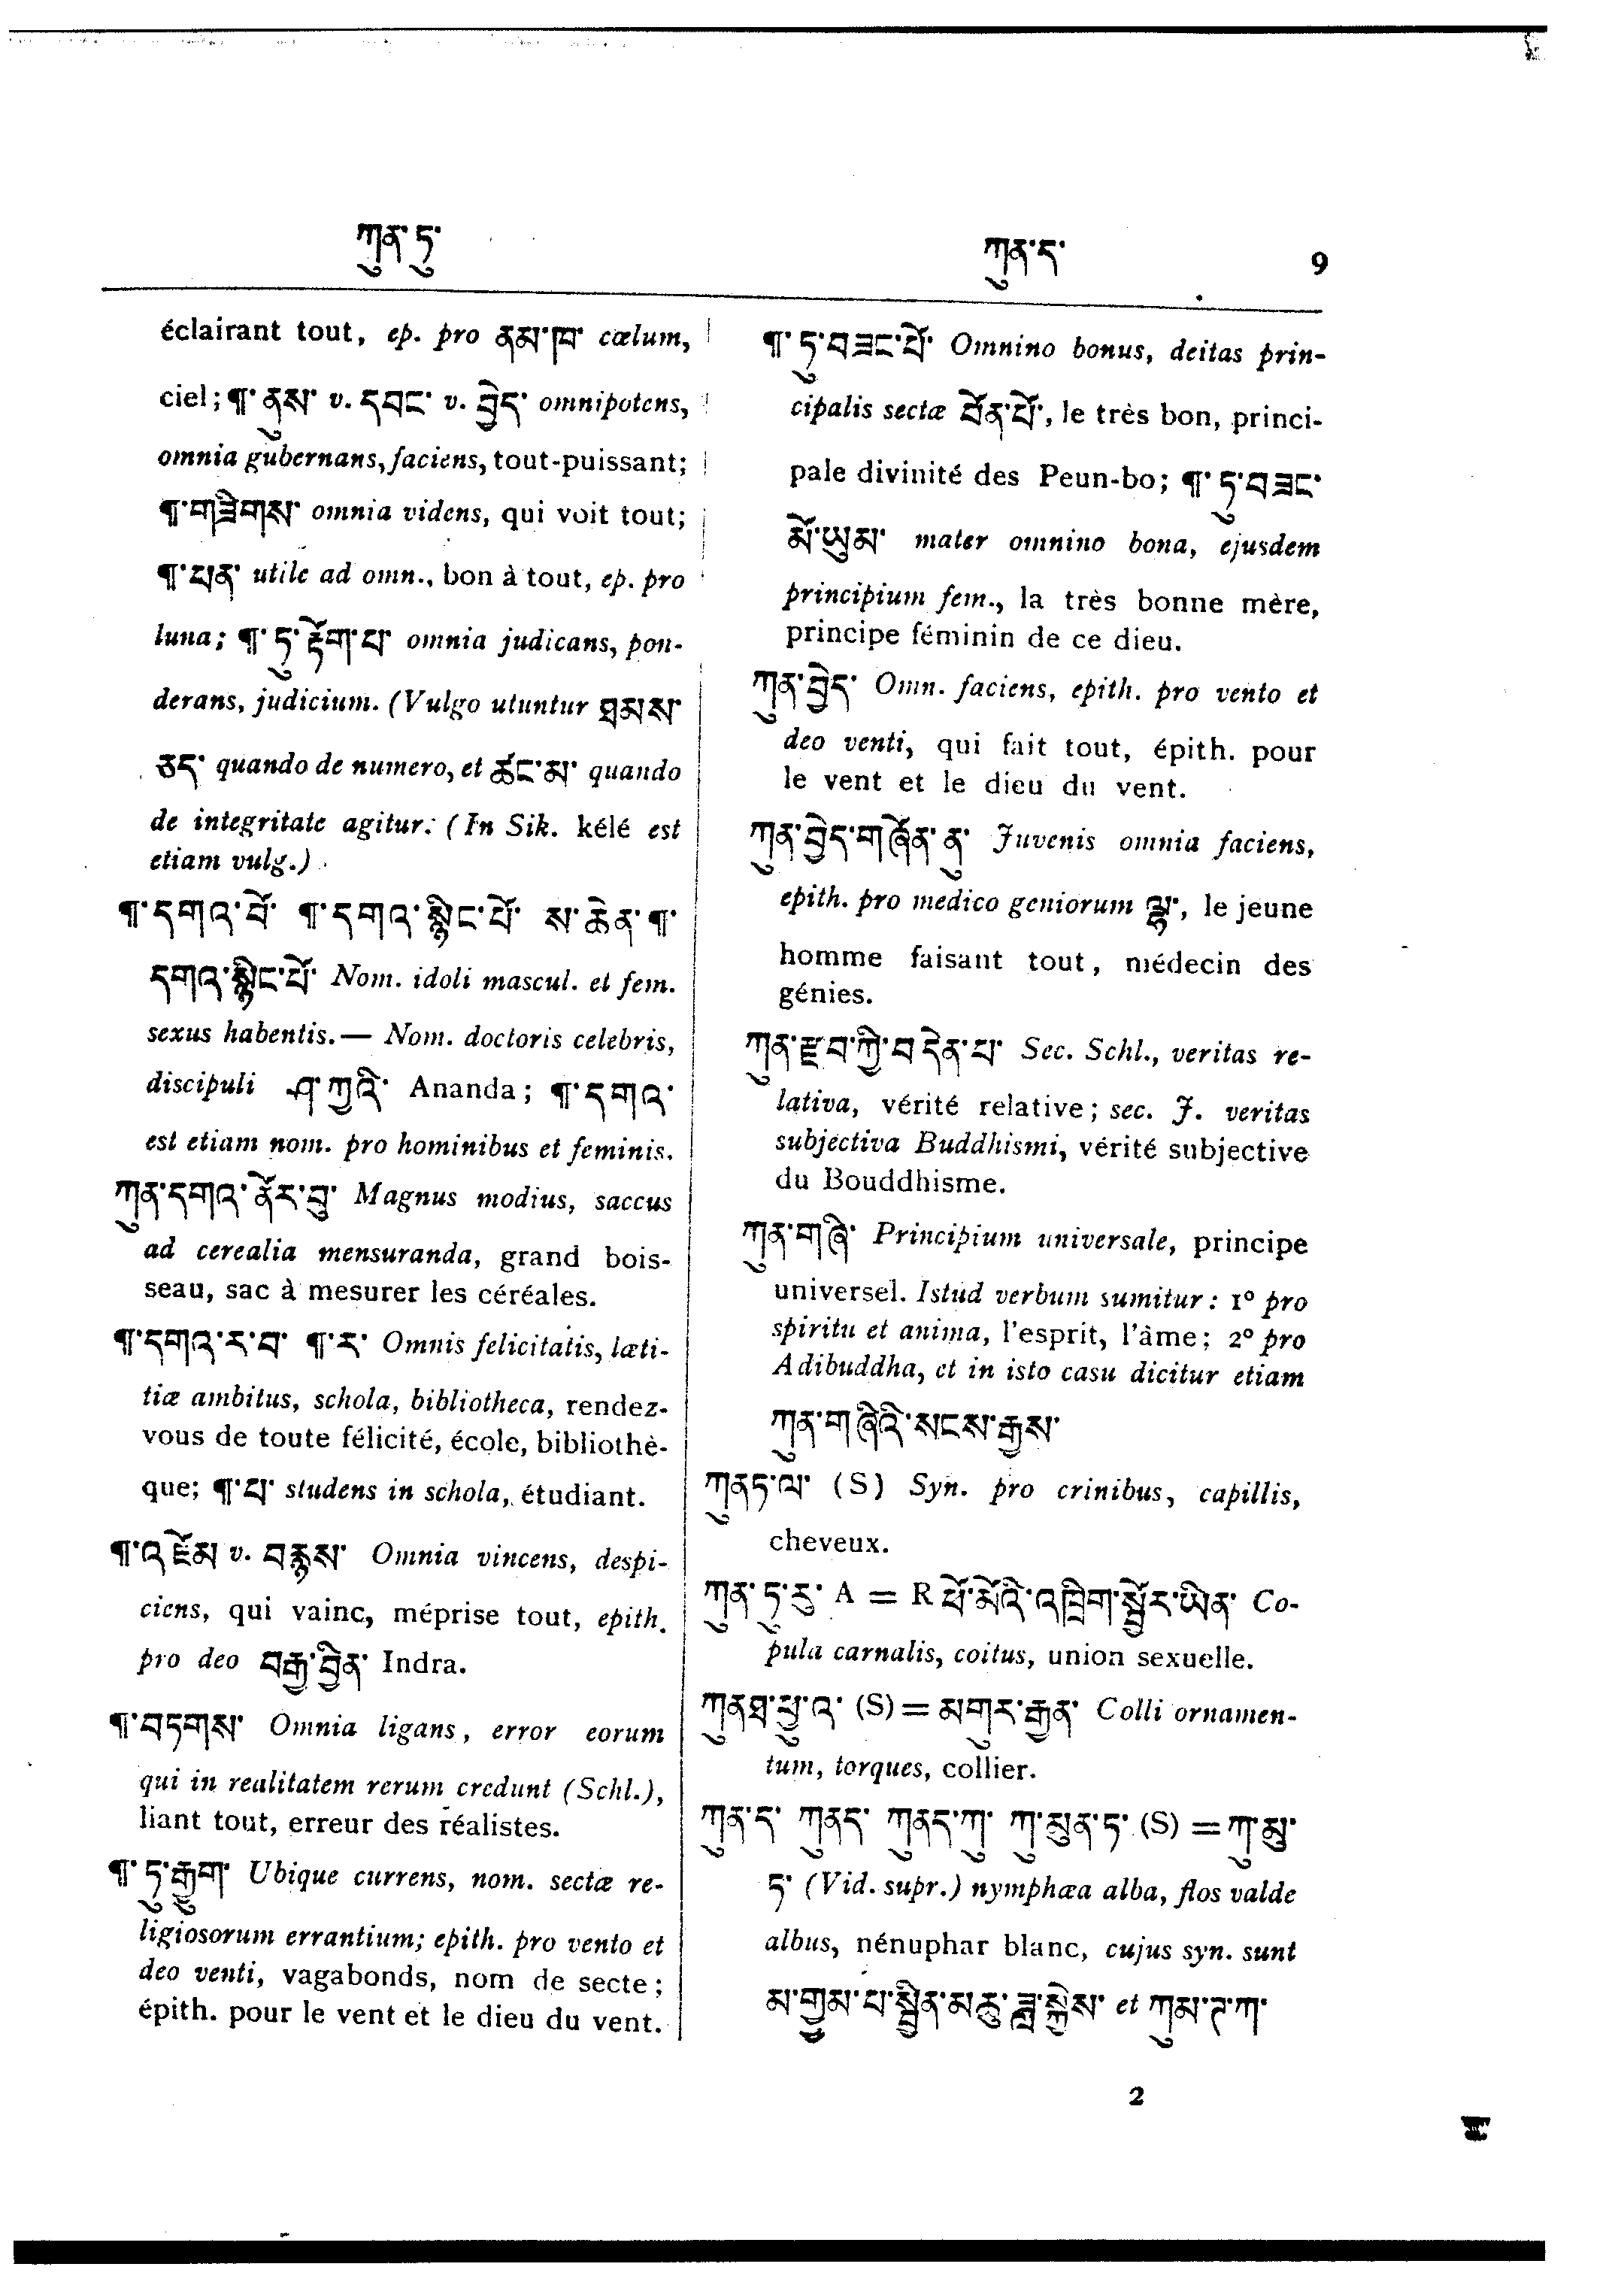 ཀུན་ཏུ་
ཀུན་ད་ 9
éclairant tout, ep. pro ནམ་ཁ་ cœlum,
ciel; ¶་ ནུས་ v. དབང་ v. བྱེད་ omnipotens,
omnia gubernans, faciens, tout-puissant;
¶་གཟིགས་ omnia videns, qui voit tout;
¶་པན་ utile ad omn., bon à tout, ep. pro
luna; ¶་ ཏུ་རྟོག་པ་ omnia judicans, pon-
derans, judicium. (Vulgo utuntur ཐམས་
ཅད་ quando de numero, et ཚང་མ་ quando
de integritate agitur. (In Sik. kélé est
etiam vulg.)
¶་དགའ་བོ་ ¶་དགའ་སྙིང་པོ་ ས་ཆེན་¶་
དགའ་སྙིང་པོ་ Nom. idoli mascul. et fem.
sexus habentis.— Nom. doctoris celebris,
discipuli ཤ་ཀྱའི་ Ananda; ¶་དགའ་
est etiam nom. pro hominibus et feminis.
ཀུན་དགའ་ནོར་བུ་ Magnus modius, saccus
ad cerealia mensuranda, grand bois-
seau, sac à mesurer les céréales.
¶་དགའ་ར་བ་ ¶་ར་ Omnis felicitatis, læti-
tiæ ambitus, schola, bibliotheca, rendez-
vous de toute félicité, école, bibliothè-
que; ¶་པ་ studens in schola, étudiant.
¶་འཇོམ v. བརྙས་ Omnia vincens, despi-
ciens, qui vainc, méprise tout, epith.
pro deo བརྒྱ་བྱིན་ Indra.
¶་བཏགས་ Omnia ligans, error eorum
qui in realitatem rerum credunt (Schl.),
liant tout, erreur des réalistes.
¶་ ཏུ་རྒྱུག་ Ubique currens, nom. sectæ re-
ligiosorum errantium; epith. pro vento et
deo venti, vagabonds, nom de secte;
épith. pour le vent et le dieu du vent.
¶་ ཏུ་བཟང་པོ་ Omnino bonus, deitas prin-
cipalis sectæ བོན་པོ་, le très bon, princi-
pale divinité des Peun-bo; ¶་ ཏུ་བཟང་
མོ་ཡུམ་ mater omnino bona, ejusdem
principium fem., la très bonne mère,
principe féminin de ce dieu.
ཀུན་བྱེད་ Omn. faciens, epith. pro vento et
deo venti, qui fait tout, épith. pour
le vent et le dieu du vent.
ཀུན་བྱེད་གཞོན་ནུ་ Juvenis omnia faciens,
epith. pro medico geniorum ལྷ་, le jeune
homme faisant tout, médecin des
génies.
ཀུན་རྫབ་ཀྱི་བདེན་པ་ Sec. Schl., veritas re-
lativa, vérité relative; sec. J. veritas
subjectiva Buddhismi, vérité subjective
du Bouddhisme.
ཀུན་གཞི་ Principium universale, principe
universel. Istud verbum sumitur: 1º pro
spiritu et anima, l'esprit, l'âme; 2º pro
Adibuddha, et in isto casu dicitur etiam
ཀུན་གཞིའི་སངས་རྒྱས་
ཀུནཏ་ལ་ (S) Syn. pro crinibus, capillis,
cheveux.
ཀུན་ ཏུ་རུ་ A = R ཕོ་མོའི་འཁྲིག་སྦྱོར་ཡིན་ Co-
pula carnalis, coitus, union sexuelle.
ཀུནཐ་ཕུ་འ་ (S) = མགུར་རྒྱན་ Colli ornamen-
tum, torques, collier.
ཀུན་ད་ ཀུནད་ ཀུནད་ཀུ་ ཀུ་མུན་ཏ་ (S) = ཀུ་མུ་
ད་ (Vid. supr.) nymphæa alba, flos valde
albus, nénuphar blanc, cujus syn. sunt
མ་གྱུམ་པ་སྦྲིན་མརུ་ཟླ་སྐྱེས་ et ཀུམ་ཊ་ཀ་
2